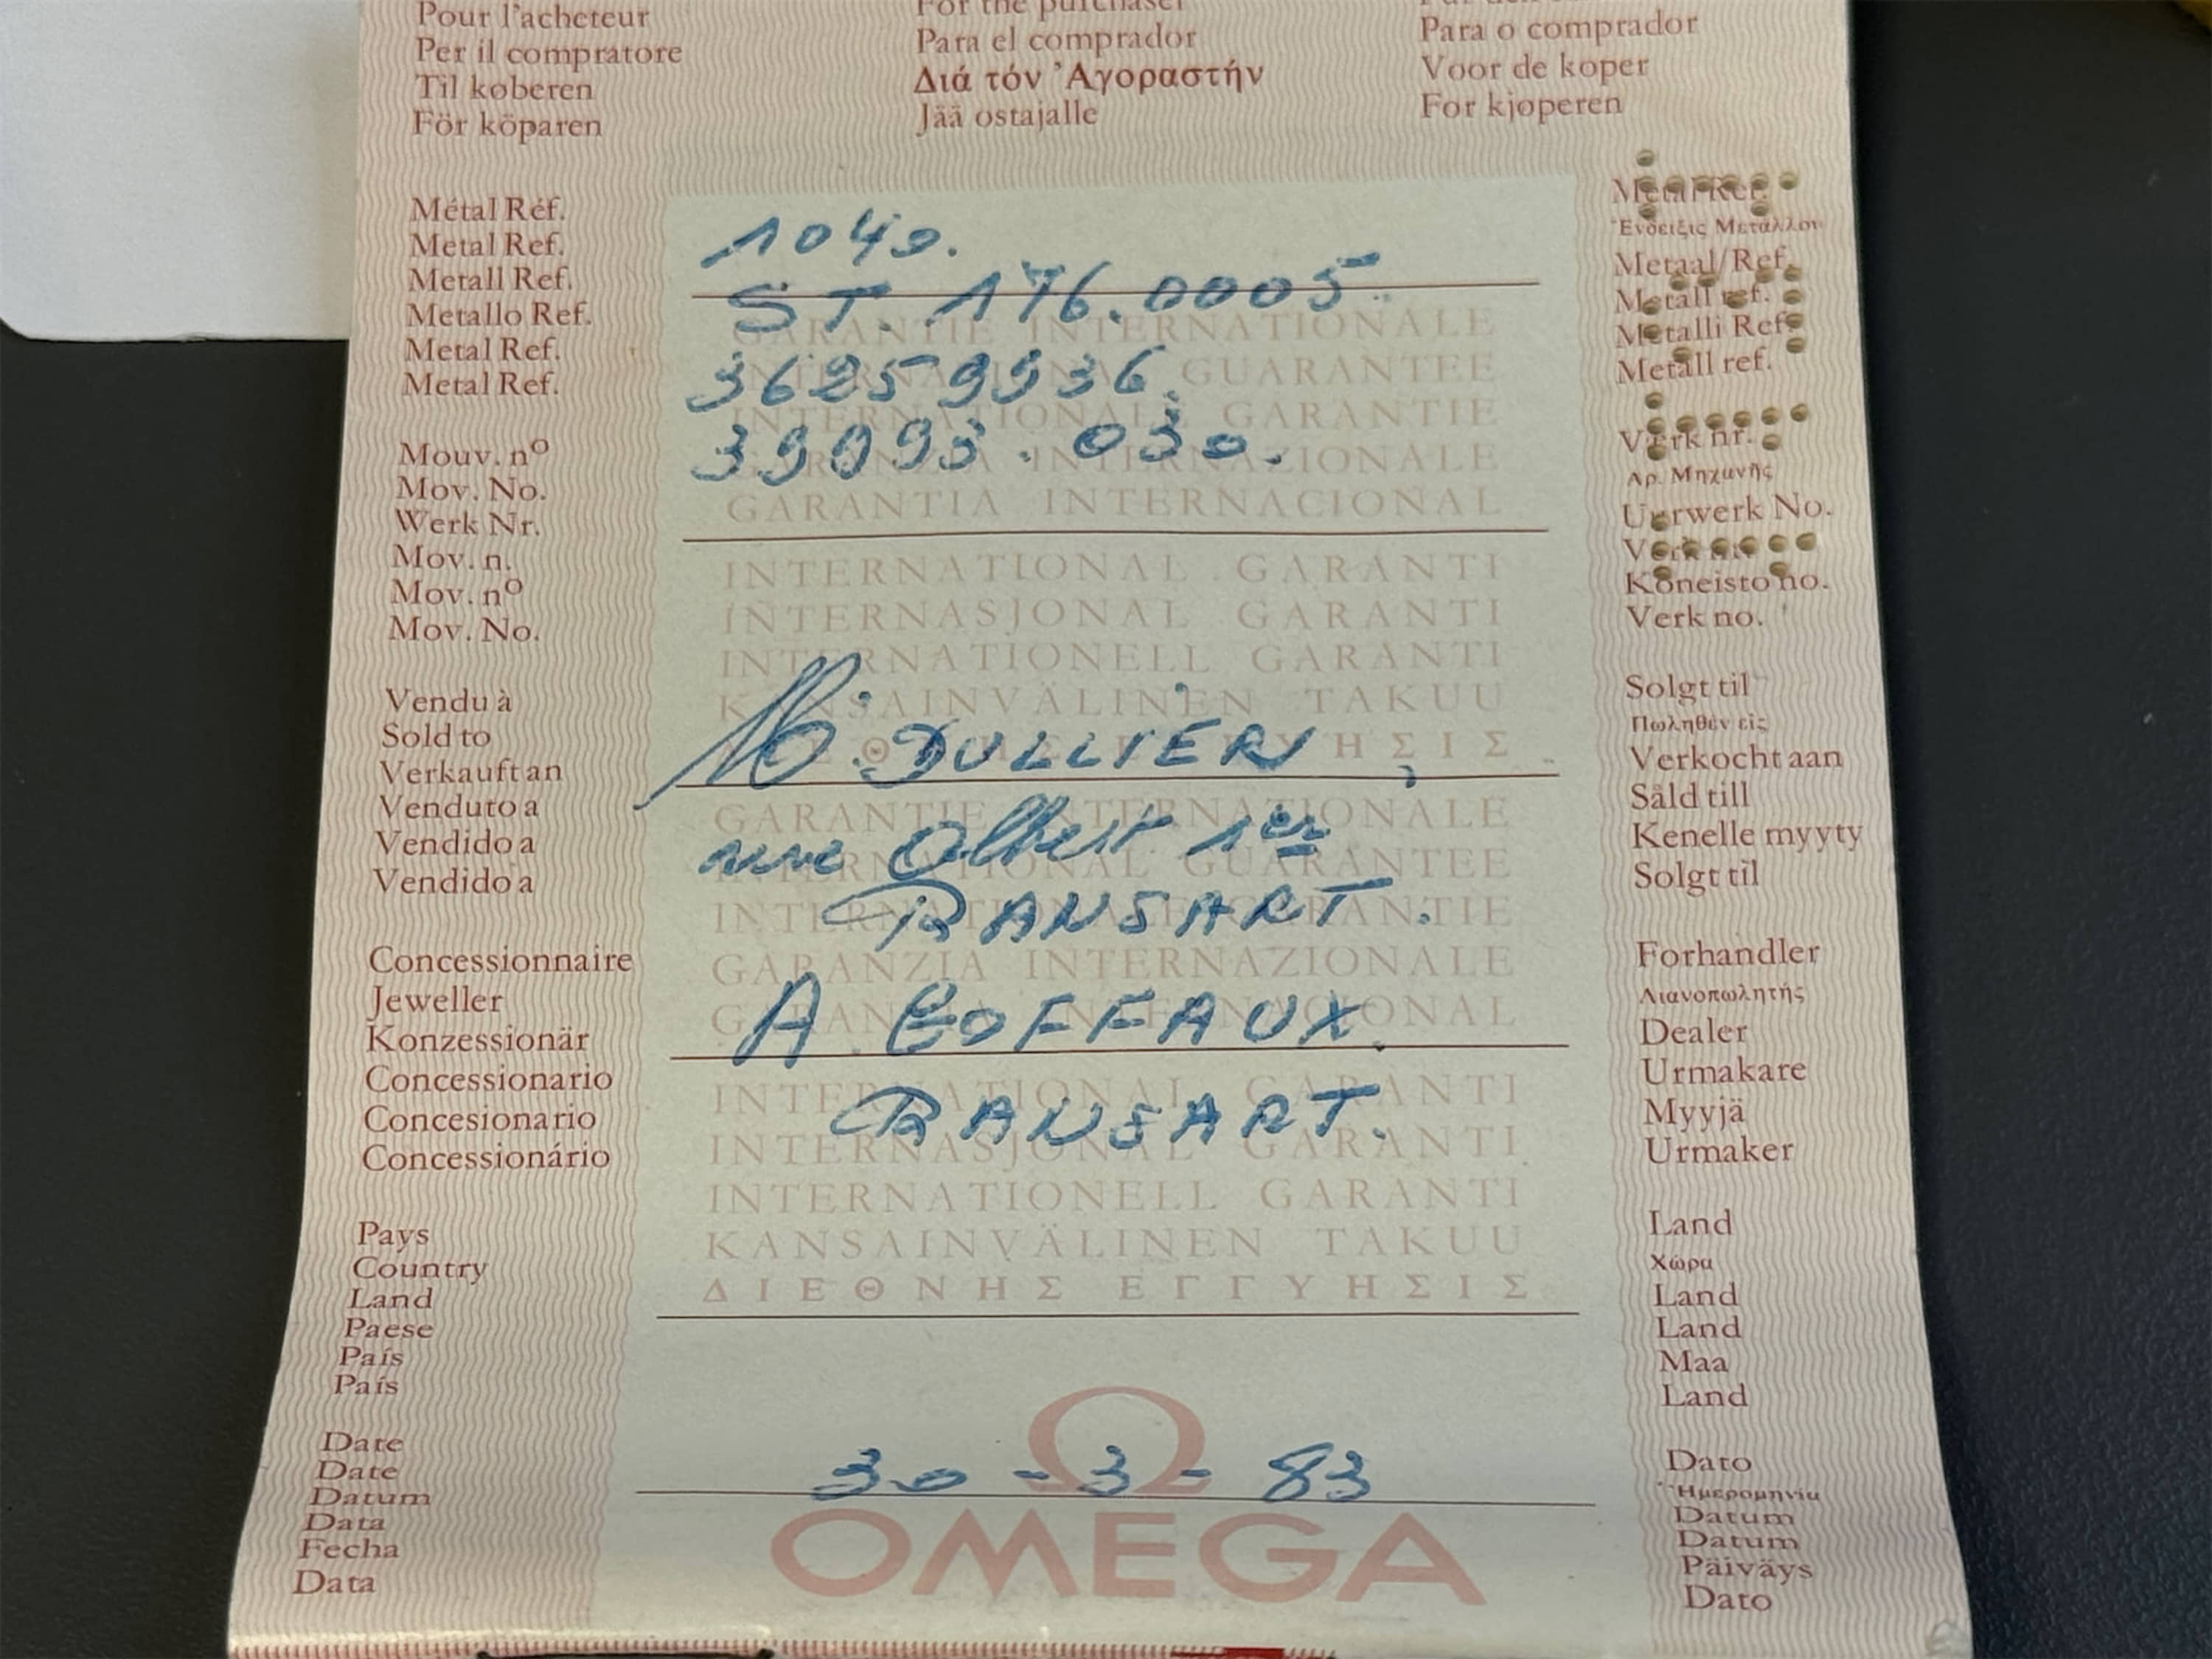 Pour l'acheteur
Per il compratore
Til køberen
För köparen
For the purchaser
Para el comprador
Διά τόν Ἀγοραστήν
Jää ostajalle
Para o comprador
Voor de koper
For kjøperen
Métal Réf.
Metal Ref.
Metall Ref.
Metallo Ref.
Metal Ref.
Metal Ref.
1040.
ST. 176.0005.
36259936.
39093.030.
Metal Ref.
Ἔνδειξις Μετάλλου
Metaal/Ref.
Metall ref.
Metalli Ref.
Metall ref.
Mouv. nº
Mov. No.
Werk Nr.
Mov. n.
Mov. nº
Mov. No.
Verk nr.
Αρ. Μηχανῆς
Uurwerk No.
Verk nr.
Koneisto no.
Verk no.
Vendu à
Sold to
Verkauft an
Venduto a
Vendido a
Vendido a
DULLIER,
rue Albert 1er
RANSART.
Solgt til
Πωληθέν εἰς
Verkocht aan
Såld till
Kenelle myyty
Solgt til
Concessionnaire
Jeweller
Konzessionär
Concessionario
Concesionario
Concessionário
A. GOFFAUX.
RANSART.
Forhandler
Λιανοπωλητής
Dealer
Urmakare
Myyjä
Urmaker
Pays
Country
Land
Paese
País
País
Land
Χώρα
Land
Land
Maa
Land
Date
Date
Datum
Data
Fecha
Data
30 - 3 - 83
Dato
Ἡμερομηνία
Datum
Datum
Päiväys
Dato
GARANTIE INTERNATIONALE
INTERNATIONAL GUARANTEE
INTERNATIONALE GARANTIE
GARANZIA INTERNAZIONALE
GARANTIA INTERNACIONAL
INTERNATIONAL GARANTI
INTERNASJONAL GARANTI
INTERNATIONELL GARANTI
KANSAINVÄLINEN TAKUU
ΔΙΕΘΝΗΣ ΕΓΓΥΗΣΙΣ
GARANTIE INTERNATIONALE
INTERNATIONAL GUARANTEE
INTERNATIONALE GARANTIE
GARANZIA INTERNAZIONALE
GARANTIA INTERNACIONAL
INTERNATIONAL GARANTI
INTERNASJONAL GARANTI
INTERNATIONELL GARANTI
KANSAINVÄLINEN TAKUU
ΔΙΕΘΝΗΣ ΕΓΓΥΗΣΙΣ
Ω
OMEGA